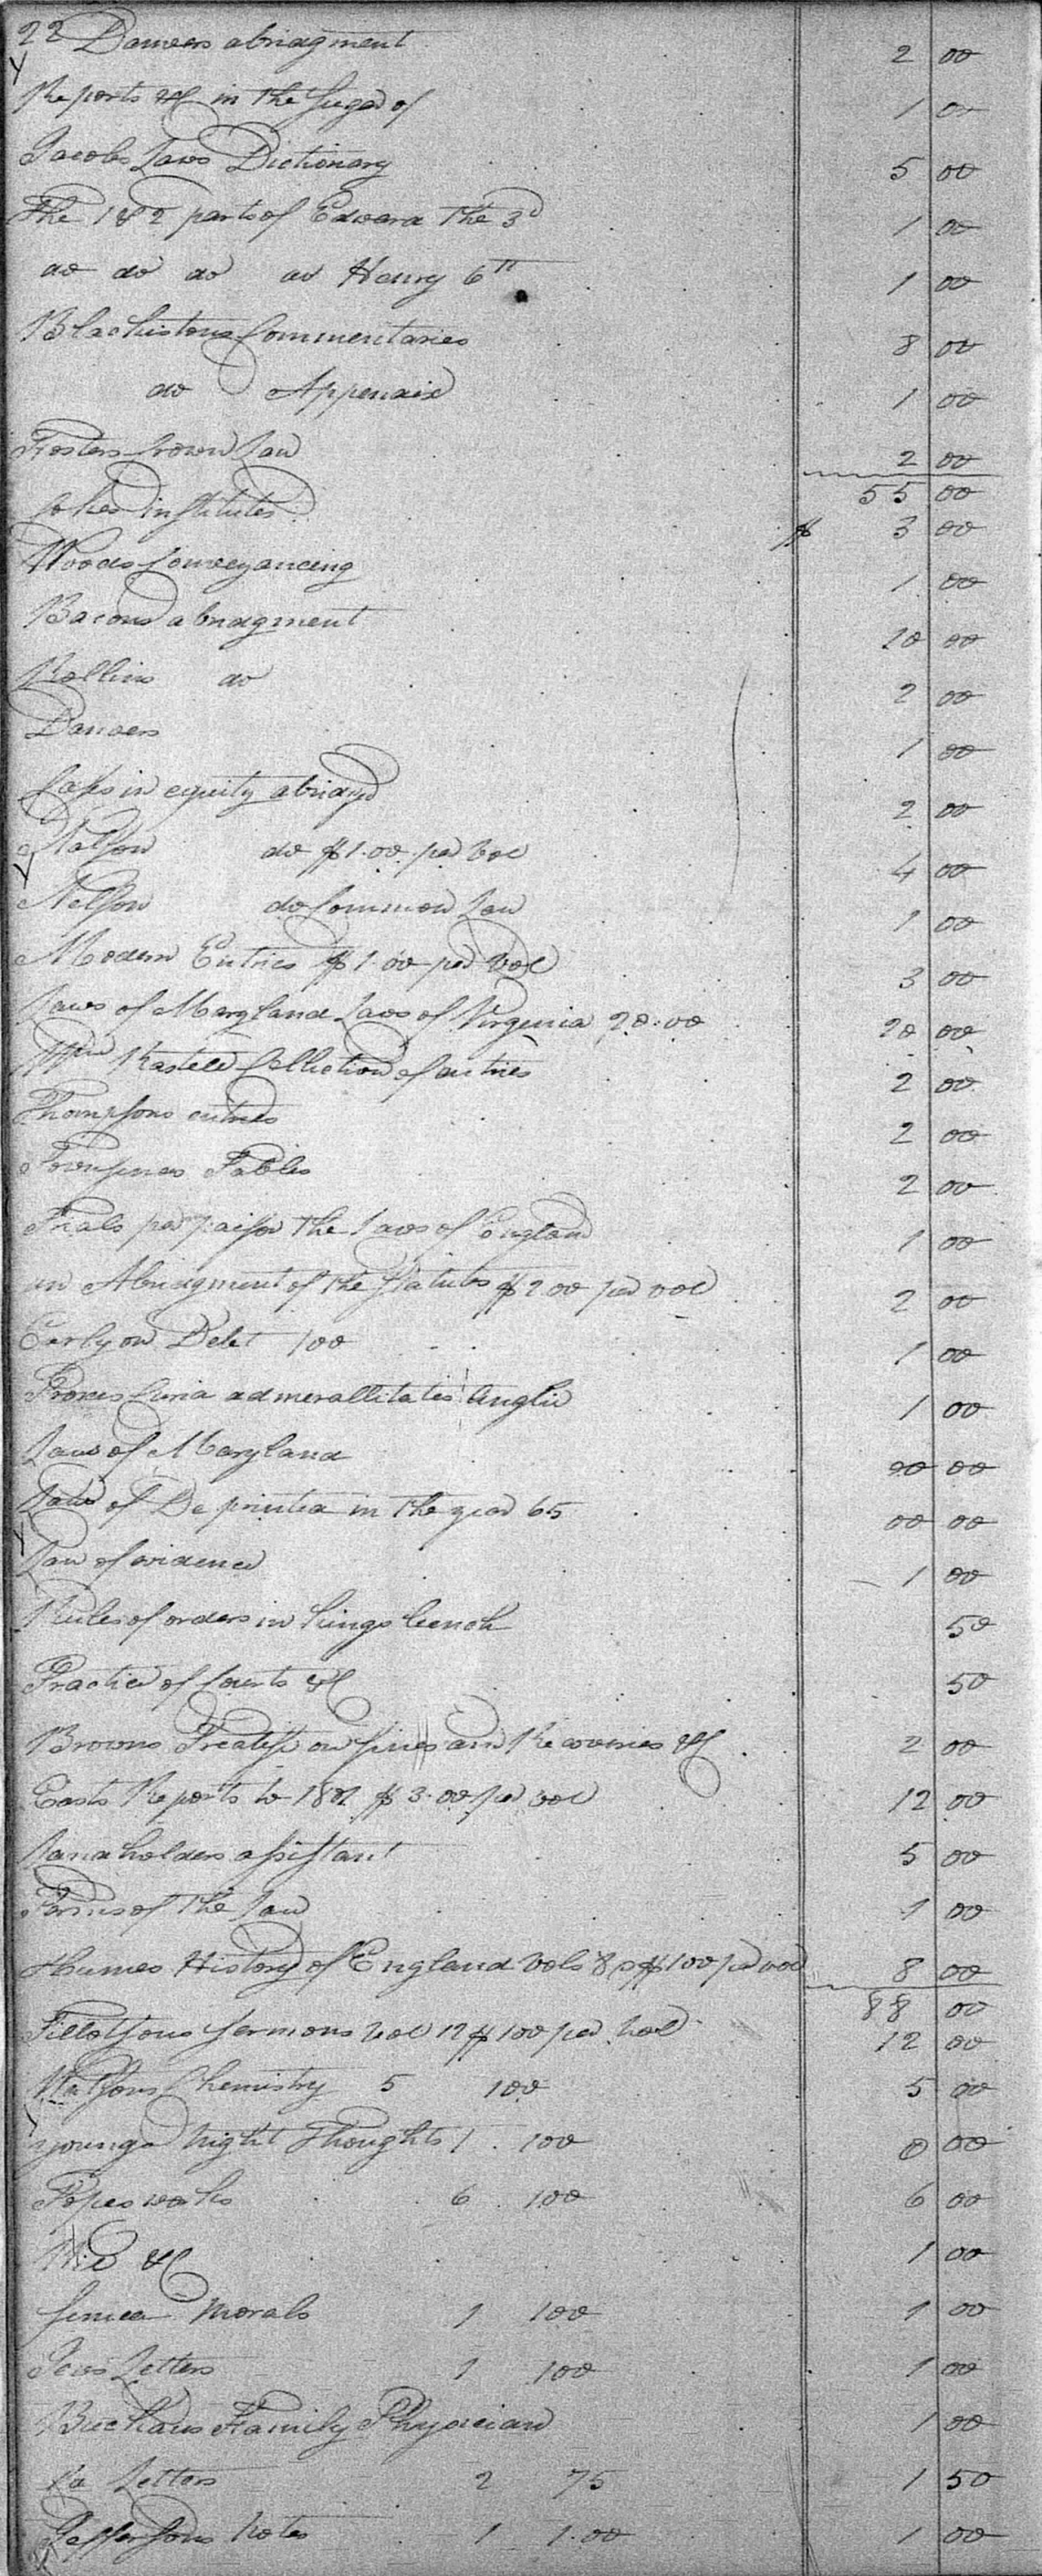 22 Danvers abridgment 2 00
Reports &c in the of 1 00
Jacobs Laws Dictionary 5 00
The 1 & 2 parts of Edward the 3d 1 00
do do do do Henry 6th 1 00
Blackistons Commentaries 8 00
do Appendix 1 00
Fosters Crown Law 2 00
55 00
Cokes institutes $ 3 00
Woods Conveyancing 1 00
Bacons abridgment 10 00
Rollins do 2 00
Danvers 1 00
Cases in equity abridgd 2 00
Nalson do $1.00 per vol 4 00
Nelson do Common Law 1 00
Modern Entries $1.00 per Vol 3 00
Laws of Maryland Laws of Virginia 20.00 20 00
Wm Rastell Collection of entries 2 00
Thompsons entries 2 00
Tables 2 00
Trials per pais or the Laws of England 1 00
an Abridgment of the Statutes $2 00 per vol 2 00
on Debt 100 1 00
Curia admerallitates Anglie 1 00
Laws of Maryland 00 00
Laws of De printed in the year 65 00 00
Law of evidence 1 00
Rules of orders in Kings bench 50
Practice of Courts &c 50
Browns Treatise on fines and Recoveries &c 2 00
Easts Reports to 1801 $3.00 per vol 12 00
Landholders assistant 5 00
of the Law 1 00
Humes History of England vols 8 $100 per vol 8 00
88 00
Tillotsons Sermons Vol 12 $100 per Vol 12 00
Watsons Chemistry 5 100 5 00
youngs Night Thoughts 1 100 0 00
Popes works 6 100 6 00
&c 1 00
Seneca Morals 1 100 1 00
Jews Letters 1 100 1 00
Buchans Family Physician 1 00
Letters 2 75 1 50
Jeffersons Notes 1 1.00 1 00